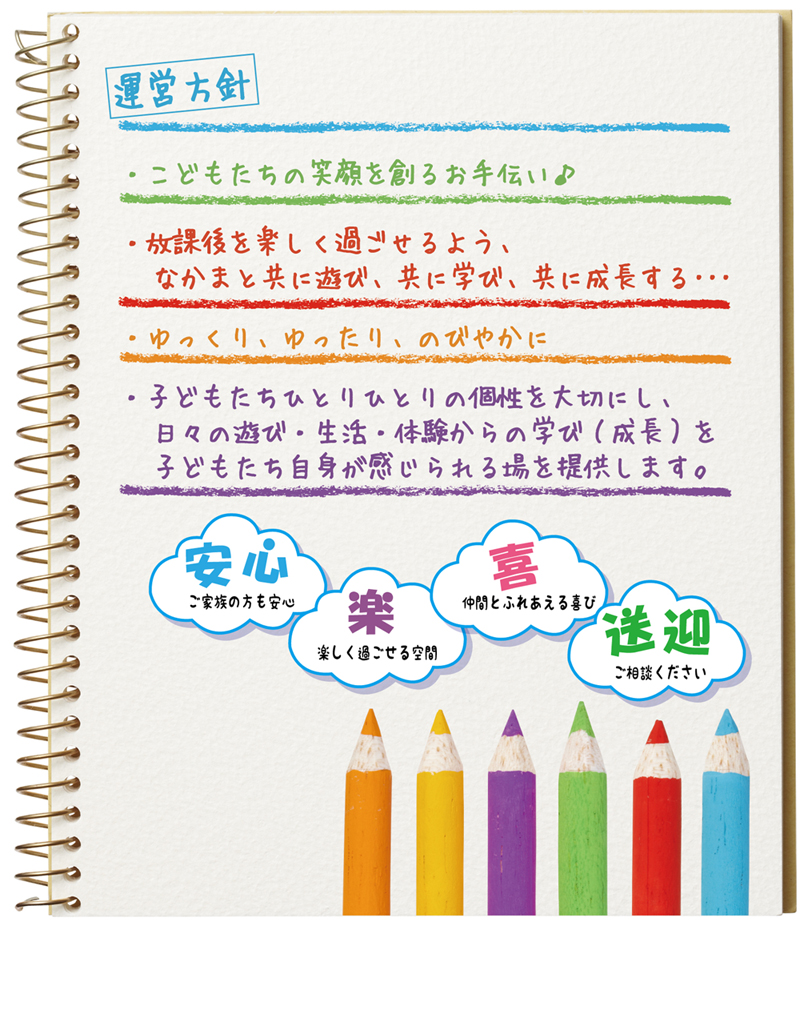 運営方針
・こどもたちの笑顔を創るお手伝い♪
・放課後を楽しく過ごせるよう、
なかまと共に遊び、共に学び、共に成長する・・・
・ゆっくり、ゆったり、のびやかに
・子どもたちひとりひとりの個性を大切にし、
日々の遊び・生活・体験からの学び（成長）を
子どもたち自身が感じられる場を提供します。
安心
ご家族の方も安心
楽
楽しく過ごせる空間
喜
仲間とふれあえる喜び
送迎
ご相談ください